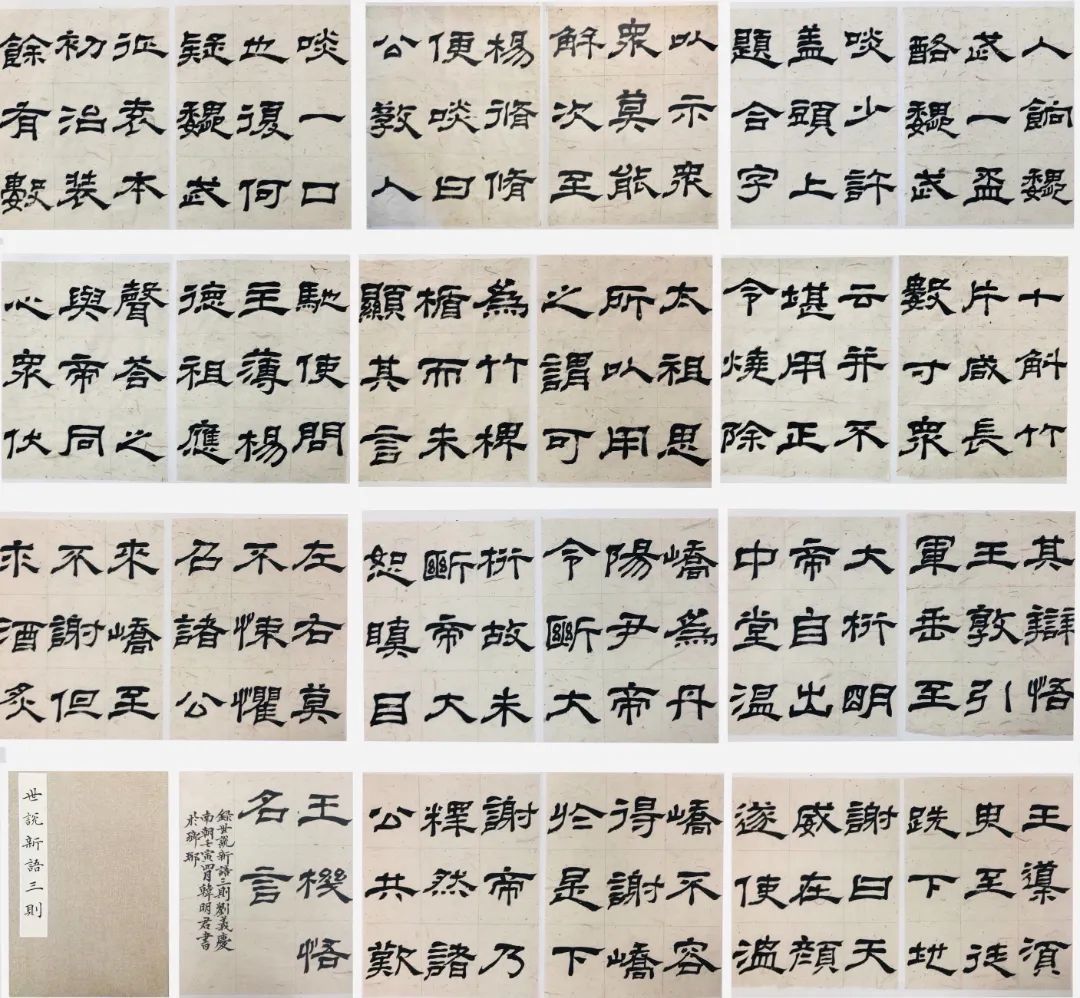 人餉魏
武一盃
酪魏武
啖少許
盖頭上
題合字
以示衆
衆莫能
解次至
楊脩脩
便啖曰
公教人
啖一口
也復何
疑魏武
征袁本
初治裝
餘有數
十斛竹
片咸長
數寸衆
云并不
堪用正
令燒除
太祖思
所以用
之謂可
為竹椑
楯而未
顯其言
馳使問
主薄楊
德祖應
聲荅之
與帝同
心衆伏
其辯悟
王敦引
軍垂至
大桁明
帝自出
中堂溫
嶠為丹
陽尹帝
令斷大
桁故未
斷帝大
恕瞋目
左右莫
不悚懼
召諸公
來嶠至
不謝但
求酒炙
王導須
臾至徒
跣下地
謝曰天
威在顏
遂使溫
嶠不容
得謝嶠
於是下
謝帝乃
釋然諸
公共歎
王機悟
名言
錄世說新語三則劉義慶
南朝壬寅四月韓明君書
於瑯琊
世說新語三則